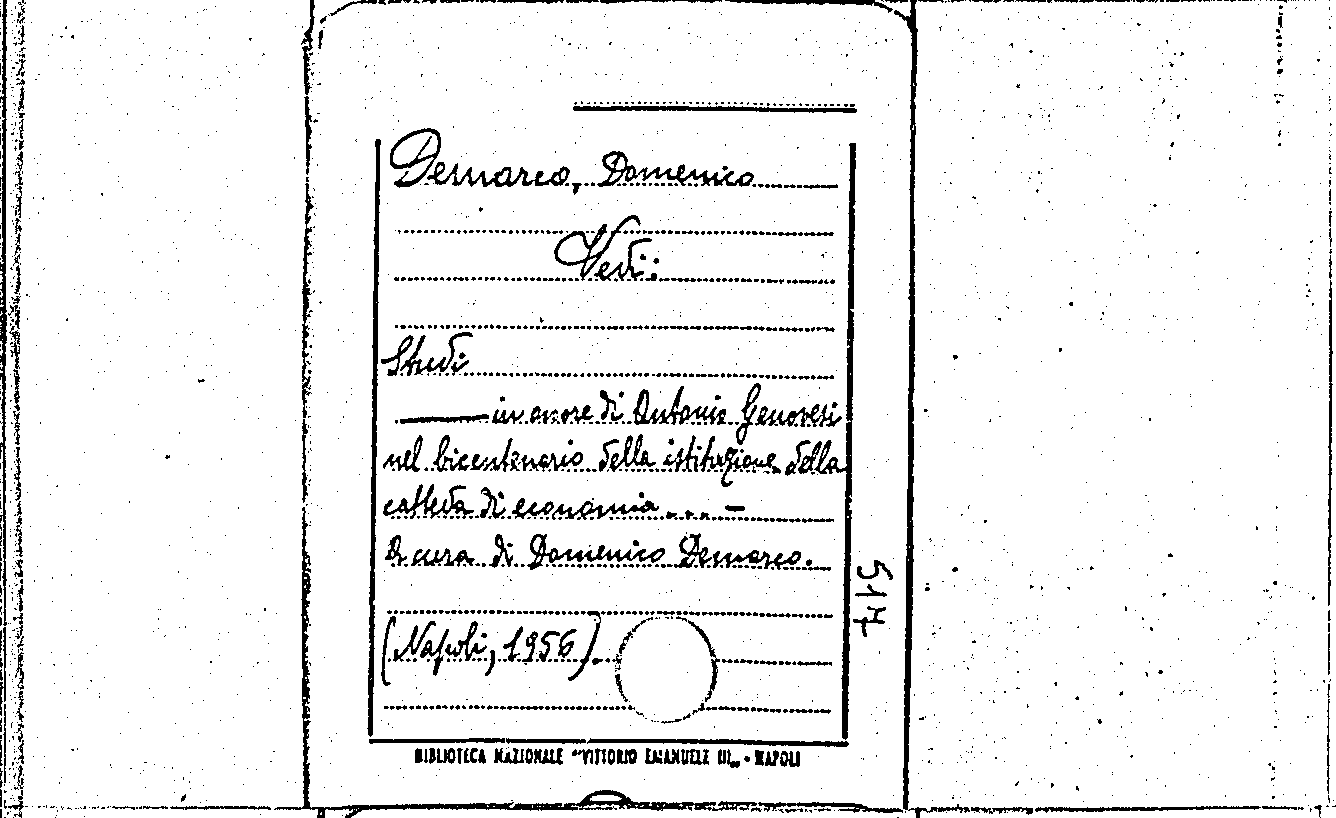 Demarco, Domenico
Vedi:
Studi
—— in onore di Antonio Genovesi
nel bicentenario della istituzione della
cattedra di economia ... —
A cura di Domenico Demarco.
(Napoli, 1956).
517
BIBLIOTECA NAZIONALE "VITTORIO EMANUELE III„ - NAPOLI